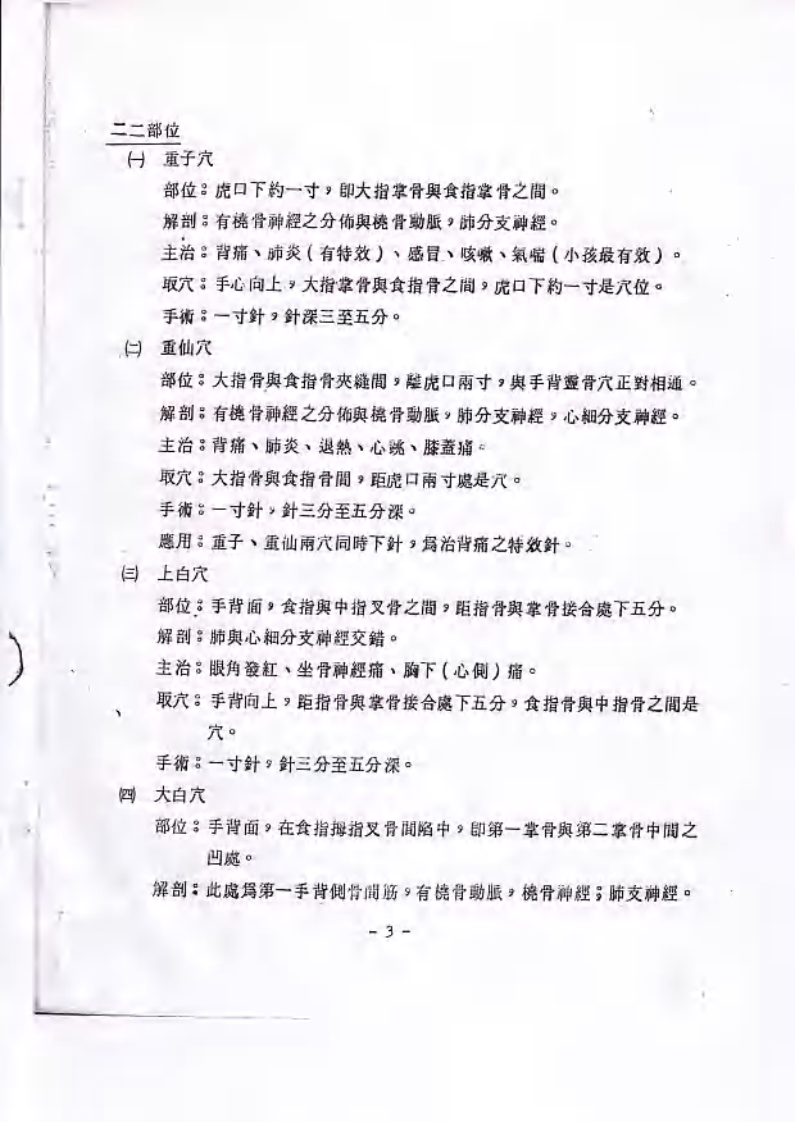 二二部位
㈠ 重子穴
部位：虎口下約一寸，卽大指掌骨與食指掌骨之間。
解剖：有橈骨神經之分佈與橈骨動脈，肺分支神經。
主治：背痛、肺炎（有特效）、感冒、咳嗽、氣喘（小孩最有效）。
取穴：手心向上，大指掌骨與食指骨之間，虎口下約一寸是穴位。
手術：一寸針，針深三至五分。
㈡ 重仙穴
部位：大指骨與食指骨夾縫間，離虎口兩寸，與手背靈骨穴正對相通。
解剖：有橈骨神經之分佈與橈骨動脈，肺分支神經，心細分支神經。
主治：背痛、肺炎、退熱、心跳、膝蓋痛。
取穴：大指骨與食指骨間，距虎口兩寸處是穴。
手術：一寸針，針三分至五分深。
應用：重子、重仙兩穴同時下針，爲治背痛之特效針。
㈢ 上白穴
部位：手背面，食指與中指叉骨之間，距指骨與掌骨接合處下五分。
解剖：肺與心細分支神經交錯。
主治：眼角發紅、坐骨神經痛、胸下（心側）痛。
取穴：手背向上，距指骨與掌骨接合處下五分，食指骨與中指骨之間是
穴。
手術：一寸針，針三分至五分深。
㈣ 大白穴
部位：手背面，在食指拇指叉骨間陷中，卽第一掌骨與第二掌骨中間之
凹處。
解剖：此處爲第一手背側骨間筋，有橈骨動脈，橈骨神經；肺支神經。
- 3 -